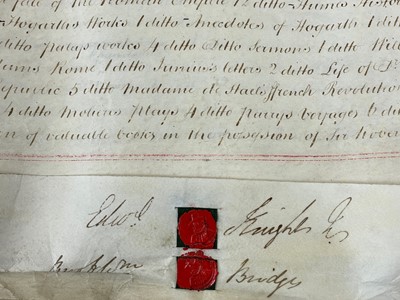 of the Roman Empire 12 ditto Humes
Hogarths Works 1 ditto Anecdotes of Hogarth 1
ditto works 4 ditto Ditto Sermons 1 ditto
Rome 1 ditto Junius's letters 2 ditto Life of
5 ditto Madame de Staels French Revolution
4 ditto Molieres Plays 4 ditto voyages 6
of valuable books in the possession of Sir
Edwd. Knight Jr
Bridges